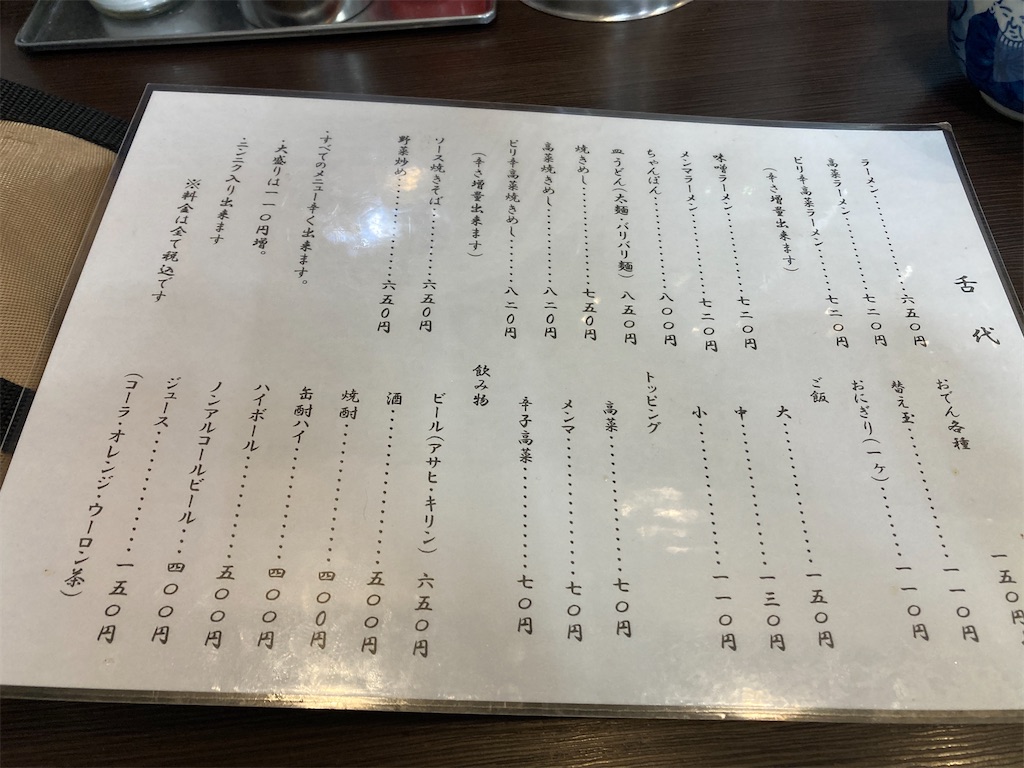 舌代
ラーメン・・・・・・・・・・・六五〇円
高菜ラーメン・・・・・・・・七二〇円
ピリ辛高菜ラーメン・・・・・七二〇円
(辛さ増量出来ます)
味噌ラーメン・・・・・・・・・七二〇円
メンマラーメン・・・・・・・・七二〇円
ちゃんぽん・・・・・・・・・・八〇〇円
皿うどん(太麺・パリパリ麺) 八五〇円
焼きめし・・・・・・・・・・七五〇円
高菜焼きめし・・・・・・・・八二〇円
ピリ辛高菜焼きめし・・・・・八二〇円
(辛さ増量出来ます)
ソース焼きそば・・・・・・六五〇円
野菜炒め・・・・・・・・・六五〇円
・すべてのメニュー辛く出来ます。
・大盛りは一一〇円増。
・ニンニク入り出来ます
※料金は全て税込です
おでん各種・・・・・・・・一五〇円
替え玉・・・・・・・・・・・一一〇円
おにぎり(一ケ)・・・・・・・一一〇円
ご飯
大・・・・・・・・・・・一五〇円
中・・・・・・・・・・・一三〇円
小・・・・・・・・・・・一一〇円
トッピング
高菜・・・・・・・・・・・七〇円
メンマ・・・・・・・・・・七〇円
辛子高菜・・・・・・・・・七〇円
飲み物
ビール(アサヒ・キリン) 六五〇円
酒・・・・・・・・・・・・五〇〇円
焼酎・・・・・・・・・・・四〇〇円
缶酎ハイ・・・・・・・・・四〇〇円
ハイボール・・・・・・・・五〇〇円
ノンアルコールビール・・四〇〇円
ジュース・・・・・・・・・一五〇円
(コーラ・オレンジ・ウーロン茶)